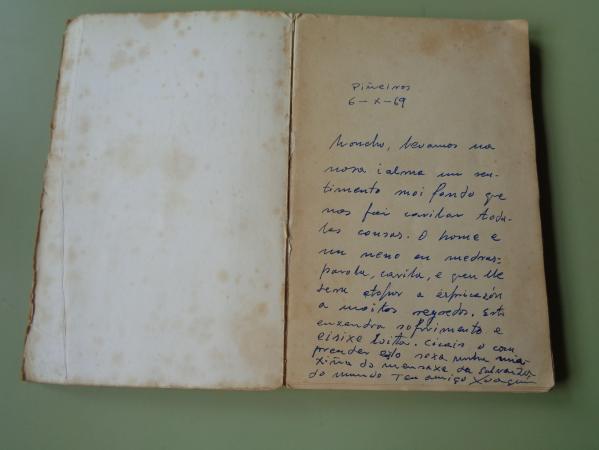 Piñeiros
6-X-69
Moncho, levamos na
nosa ialma un sen-
timento moi fondo que
nos fai cavilar toda-
las cousas. O home e
un neno ou medras-
parola, cavila, e quer lle
atopar a espricazón
a moitos segredos. Esto
enxendra sofrimento e
eisixe loita. Cicais o com
prender esto sexa unha
do mensaxe da Salvación
do mundo Teu amigo Xoaquin